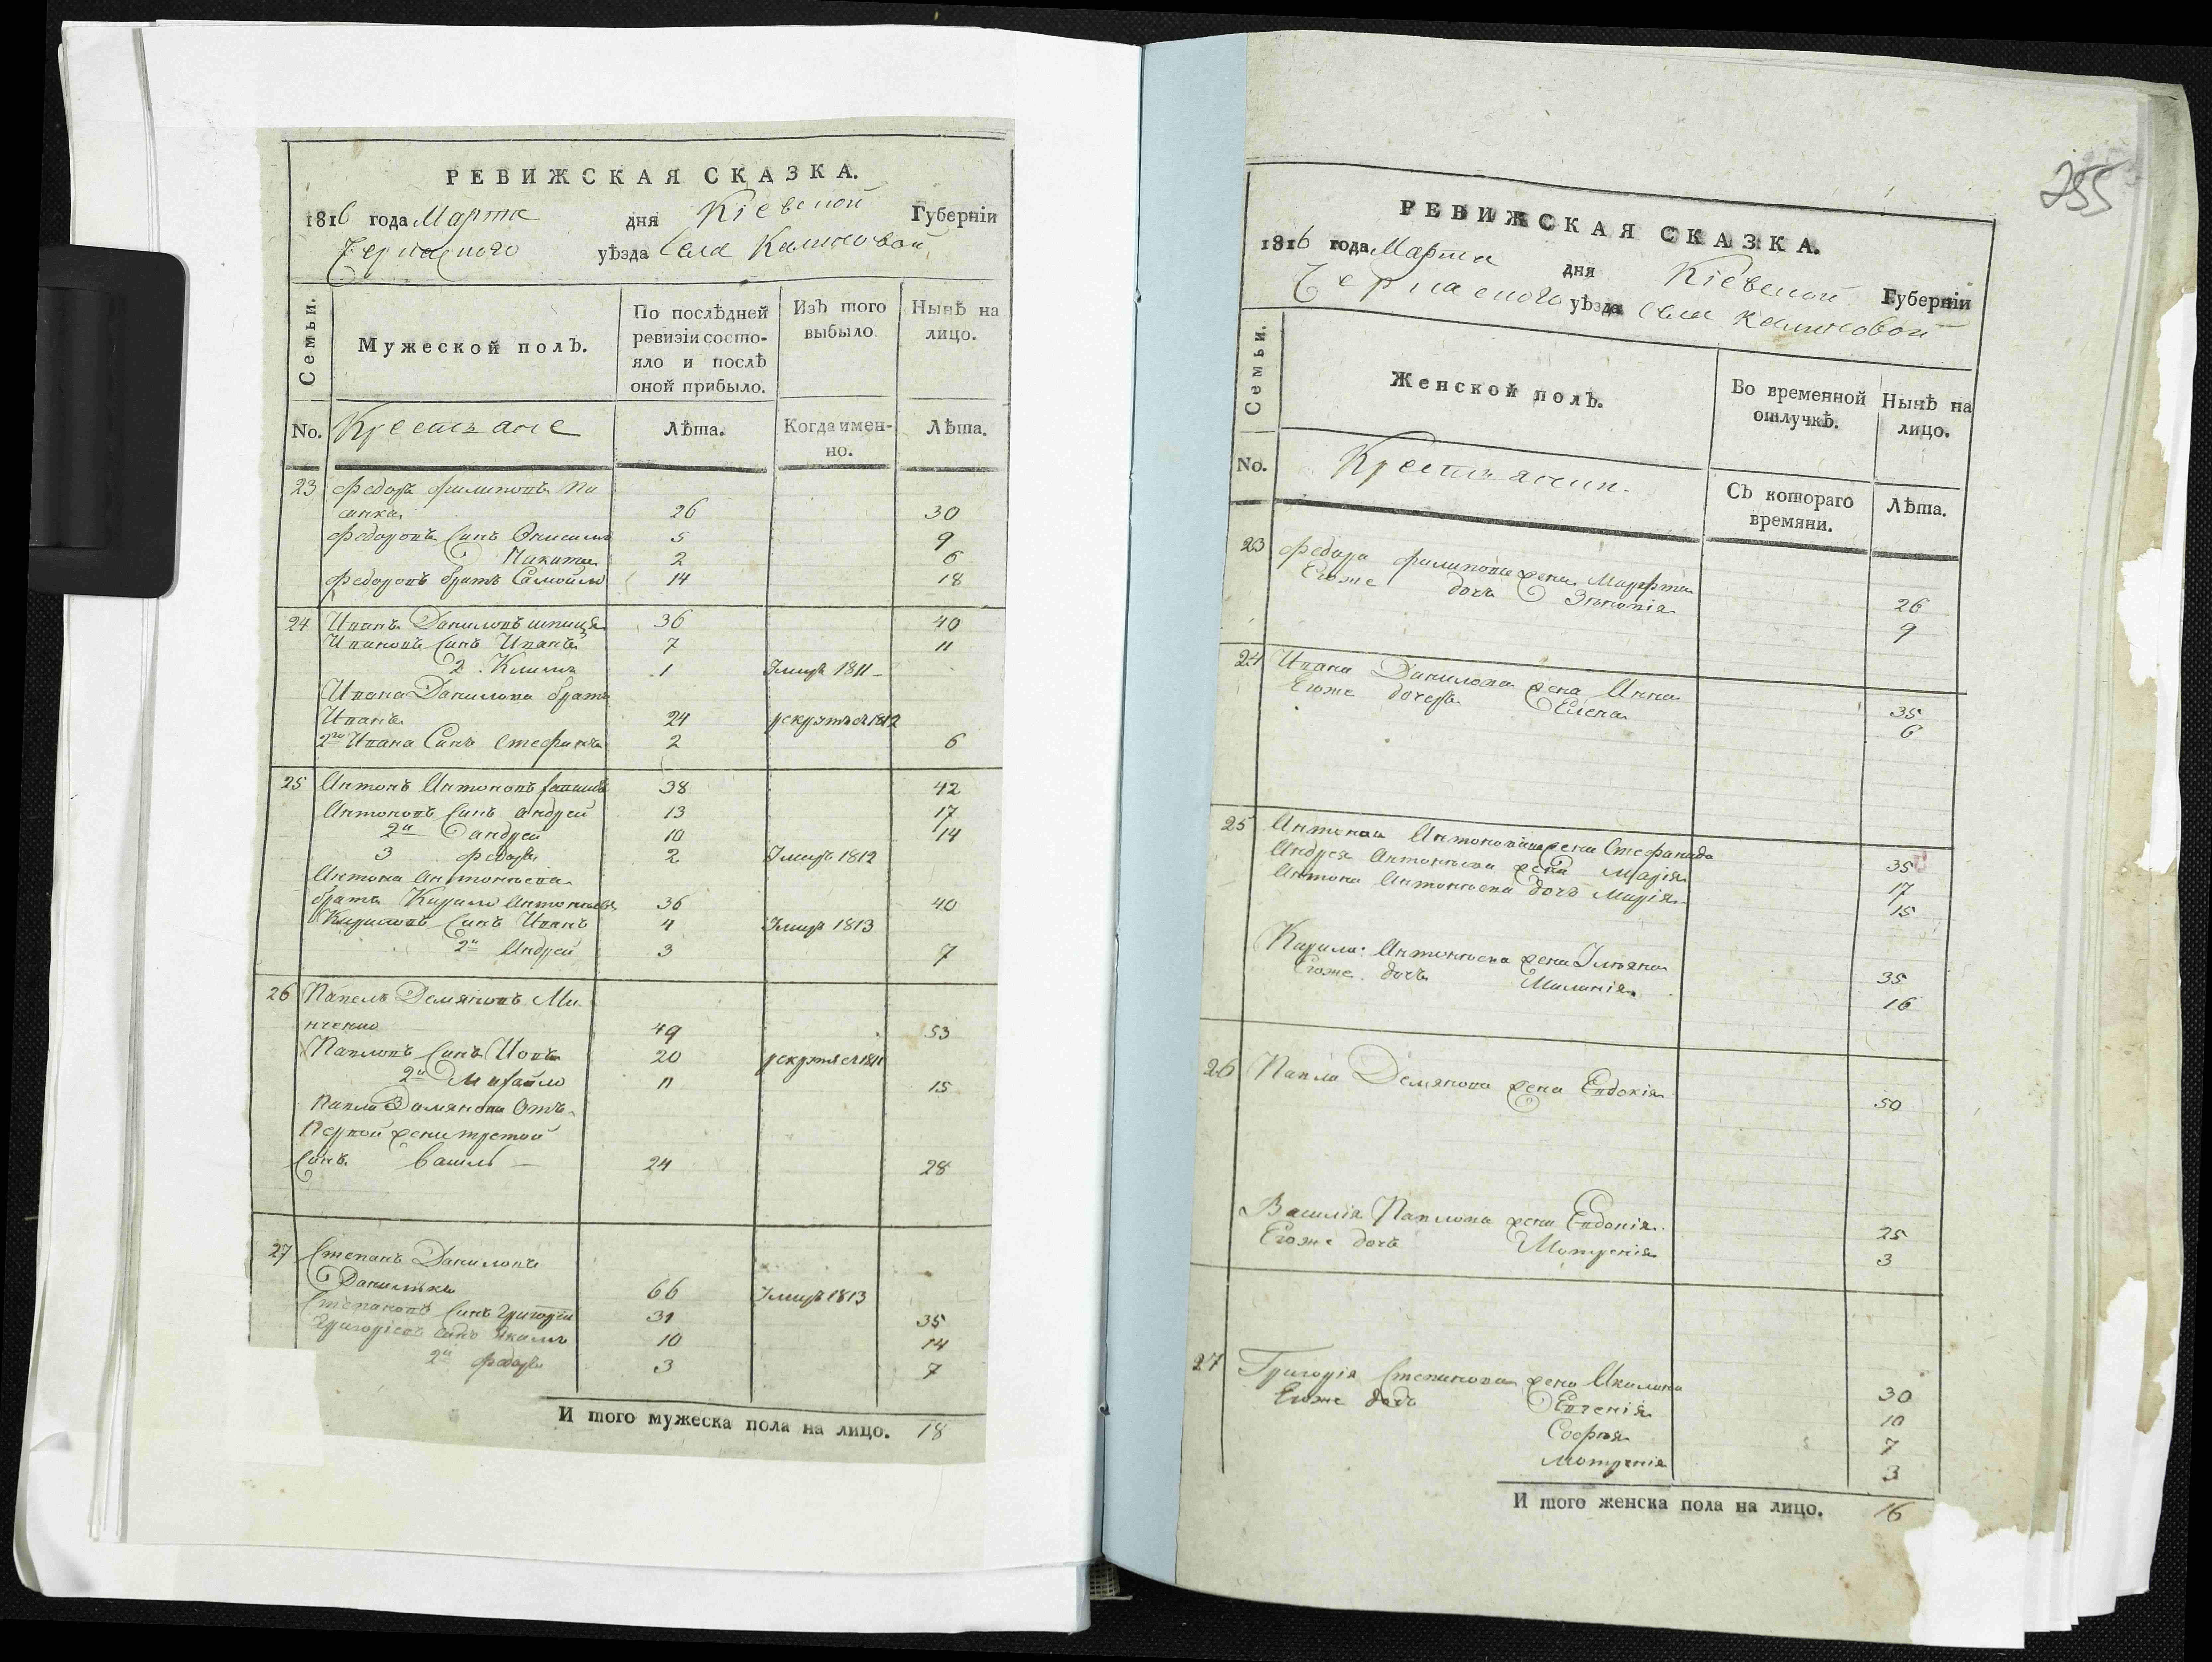 РЕВИЖСКАЯ СКАЗКА.
1816 года Марта дня Кіевской Губерніи
Черкаского уѣзда Села Калиновой
Семьи.
Мужеской полъ.
По послѣдней ревизіи состо-
яло и послѣ
оной прибыло.
Изъ того
выбыло.
Нынѣ на
лицо.
No. Крестяне
Лѣта.
Когда имен-
но.
Лѣта.
23 Федоръ Филиповъ
26 30
Федоровъ Синъ Онисимъ 5 9
Никита 2 6
Федоровъ братъ Самойло 14 18
24 Иванъ Даниловъ 36 40
Ивановъ Синъ Иванъ 7 11
2 Климъ 1 Умиръ 1811
Ивана Данилова братъ
Иванъ 24 1812
2го Ивана Синъ Стефанъ 2 6
25 Антонъ Антоновъ 38 42
Антоновъ Синъ Андрей 13 17
2й Андрей 10 14
3 Федоръ 2 Умиръ 1812
Антона Антонъева
братъ Кирило Антонъевъ 36 40
Кириловъ Синъ Иванъ 4 Умиръ 1813
2й Андрей 3 7
26 Павелъ Демяновъ Ми
нченко 49 53
Павловъ Синъ Иовъ 20 1811
2й Михайло 11 15
Павла Демянова Отъ
Первой жени третой
Синъ Василь 24 28
27 Степанъ Даниловъ
Данилъко 66 Умиръ 1813
Степановъ Синъ Григорій 31 35
Григоріевъ Синъ Якимъ 10 14
2й Федоръ 3 7
И того мужеска пола на лицо. 18
255
РЕВИЖСКАЯ СКАЗКА.
1816 года Марта дня Кіевской Губерніи
Черкаского уѣзда Села Калиновой
Семьи.
Женской полъ.
Во временной
отлучкѣ.
Нынѣ на
лицо.
No.
Съ котораго
времяни.
Лѣта.
23 Федора Филипова жена Марфта 26
Егоже дочъ Зѣновія 9
24 Ивана Данилова жена Анна 35
Егоже дочеръ Елена 6
25 Антона Антоновича жена Стефанида 35
Андрея Антонъева жена Марія 17
Антона Антонъева дочъ Марія 15
Кирила Антонъева жена Улияна 35
Егоже дочъ Миланія 16
26 Павла Демянова жена Евдокія 50
Василія Павлова жена Евдокія 25
Егоже дочъ Мотренія 3
27 Григорія Степанова жена Акилина 30
Егоже дочъ Евгенія 10
Софія 7
Мотренія 3
И того женска пола на лицо. 16